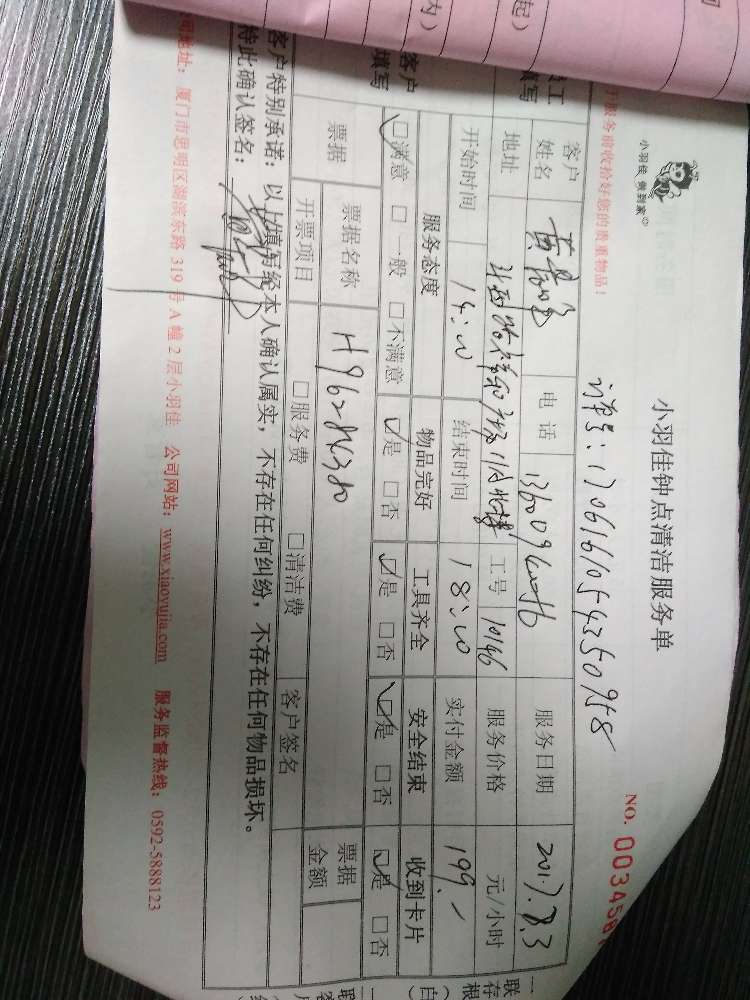 小羽佳钟点清洁服务单
小羽佳 家到家
NO. 0034587
单号：1706161054350958
服务前收拾好您的贵重物品！
客户姓名 电话 服务日期 2017.8.3
地址 工号 10146 服务价格 元/小时
开始时间 14:00 结束时间 18:00 实付金额 199.-
服务态度 物品完好 工具齐全 安全结束 收到卡片
☑满意 □一般 □不满意 ☑是 □否 ☑是 □否 ☑是 □否 ☑是 □否
票据 票据名称 票据金额
开票项目 □服务费 □清洁费 客户签名
客户特别承诺：以上填写经本人确认属实，不存在任何纠纷，不存在任何物品损坏。
特此确认签名：
司地址：厦门市思明区湖滨东路 319 号 A 幢 2 层小羽佳 公司网站：www.xiaoyujia.com 服务监督热线：0592-5888123